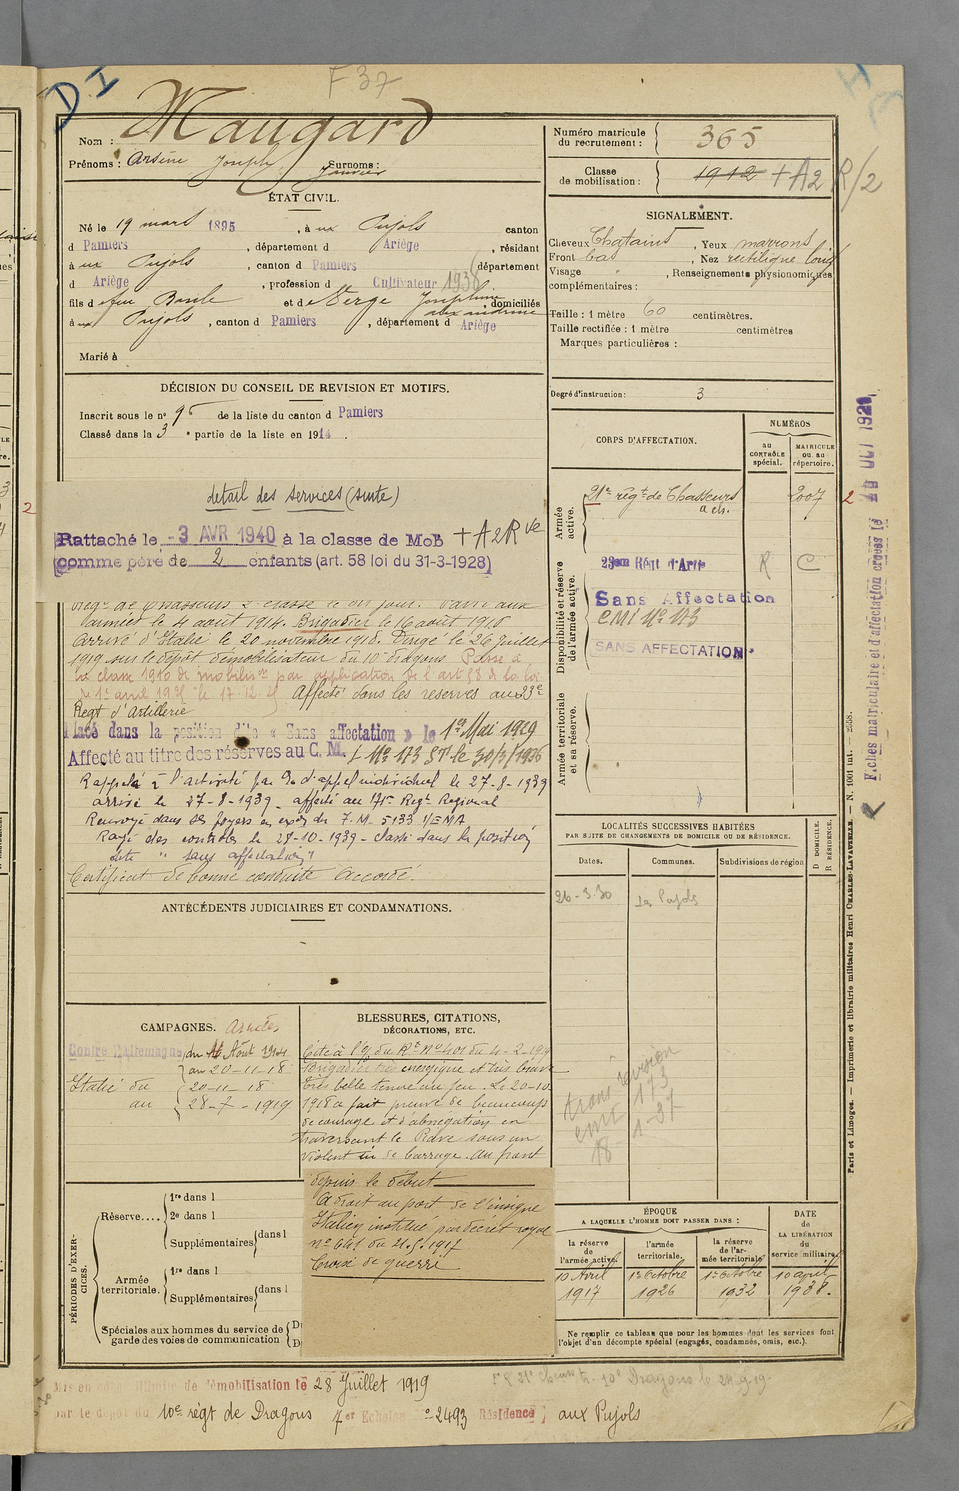 D I
F 37
Nom : Maugard
Prénoms : Arsène Joseph Surnoms :
Janvier
Numéro matricule
du recrutement : 365
Classe
de mobilisation : 1912 + A2 R/2
ÉTAT CIVIL.
Né le 19 mars 1895, à ux Pujols canton
d Pamiers, département d Ariège, résidant
à ux Pujols, canton d Pamiers département
d Ariège, profession d Cultivateur 1936
fils d efeu Basile et de Verge Joséphine, domiciliés
à ux Pujols, canton d Pamiers, département d Ariège
Marié à
SIGNALEMENT.
Cheveux Chatains, Yeux marrons
Front bas, Nez rectiligne long
Visage, Renseignements physionomiques
complémentaires :
Taille : 1 mètre 60 centimètres.
Taille rectifiée : 1 mètre centimètres
Marques particulières :
Degré d'instruction : 3
DÉCISION DU CONSEIL DE REVISION ET MOTIFS.
Inscrit sous le n° 95 de la liste du canton d Pamiers
Classé dans la 3e partie de la liste en 1914.
detail des services (suite)
Rattaché le -3 AVR 1940 à la classe de Mob + A2R ve
comme père de 2 enfants (art. 58 loi du 31-3-1928)
Régt de Chasseurs 2e classe le dit jour. Passé aux
armées le 4 août 1914. Brigadier le 16 août 1916
Arrivé d'Italie le 20 novembre 1918. Dirigé le 26 juillet
1919 sur le dépôt démobilisateur du 10e dragons Passé à
la classe 1910 de mobilison par application de l'art 58 de la loi
du 1er avril 1923 le 17.12.25 Affecté dans les réserves au 23e
Régt d'artillerie
Placé dans la position dite « Sans affectation » le 1er Mai 1929
Affecté au titre des réserves au C. M. I N° 173 St le 30/3/1936
Rappelé à l'activité par O. d'appel individuel le 27-8-1939
arrivé le 27-8-1939 - affecté au 171e Regt Regional
Renvoyé dans ses foyers en exon du T.M. 5133 1/EMA
Rayé des controles le 28-10-1939 - classé dans la position
dite "sans affectation"
Certificat de bonne conduite accordé.
CORPS D'AFFECTATION.
NUMÉROS
au
CONTRÔLE
spécial.
MATRICULE
ou au
répertoire.
Armée
active.
21e régt de Chasseurs 2007 2
à ch.
Disponibilité et réserve
de l'armée active.
23em Régt d'Artie R C
Sans Affectation
CMI N° 173
SANS AFFECTATION
Armée territoriale
et sa réserve.
LOCALITÉS SUCCESSIVES HABITÉES
PAR SUITE DE CHANGEMENTS DE DOMICILE OU DE RÉSIDENCE.
Dates. Communes. Subdivisions de région
D DOMICILE.
R RÉSIDENCE.
26-3-30 Les Pujols
trans révision
cmi 173
18-1-37
ANTÉCÉDENTS JUDICIAIRES ET CONDAMNATIONS.
CAMPAGNES. Armées
Contre l'Allemagne du 4 Août 1914
au 20-11-18
Italie du 20-11-18
au 28-7-1919
BLESSURES, CITATIONS,
DÉCORATIONS, ETC.
Cité à l'O. du Rt N° 401 du 4-2-1919
Brigadier très énergique et très brave
très belle tenue au feu. Le 20-10
1918 a fait preuve de beaucoup
de courage et d'abnégation en
traversant le Piave sous un
violent tir de barrage. Au front
depuis le début
A droit au port de l'insigne
Italien institué par décret royal
n° 641 du 21.5.1917
Croix de guerre
PÉRIODES D'EXER-
CICES.
Réserve.... 1re dans l
2e dans l
Supplémentaires dans l
Armée
territoriale. 1re dans l
Supplémentaires dans l
Spéciales aux hommes du service de
garde des voies de communication
ÉPOQUE
A LAQUELLE L'HOMME DOIT PASSER DANS :
la réserve
de
l'armée active.
l'armée
territoriale.
la réserve
de l'ar-
mée territoriale
DATE
de
LA LIBÉRATION
du
service militaire
10 avril 1er Octobre 1er Octobre 10 avril
1917 1926 1932 1938.
Ne remplir ce tableau que pour les hommes dont les services font
l'objet d'un décompte spécial (engagés, condamnés, omis, etc.).
Mis en congé illimité de démobilisation le 28 Juillet 1919
par le dépôt du 10e régt de Dragons 7er Echelon n° 2493 Résidence aux Pujols
Fiches matriculaire et d'affectation créées le OCT 1921
Paris et Limoges. — Imprimerie et librairie militaires Henri CHARLES-LAVAUZELLE. — N. 1001 int.